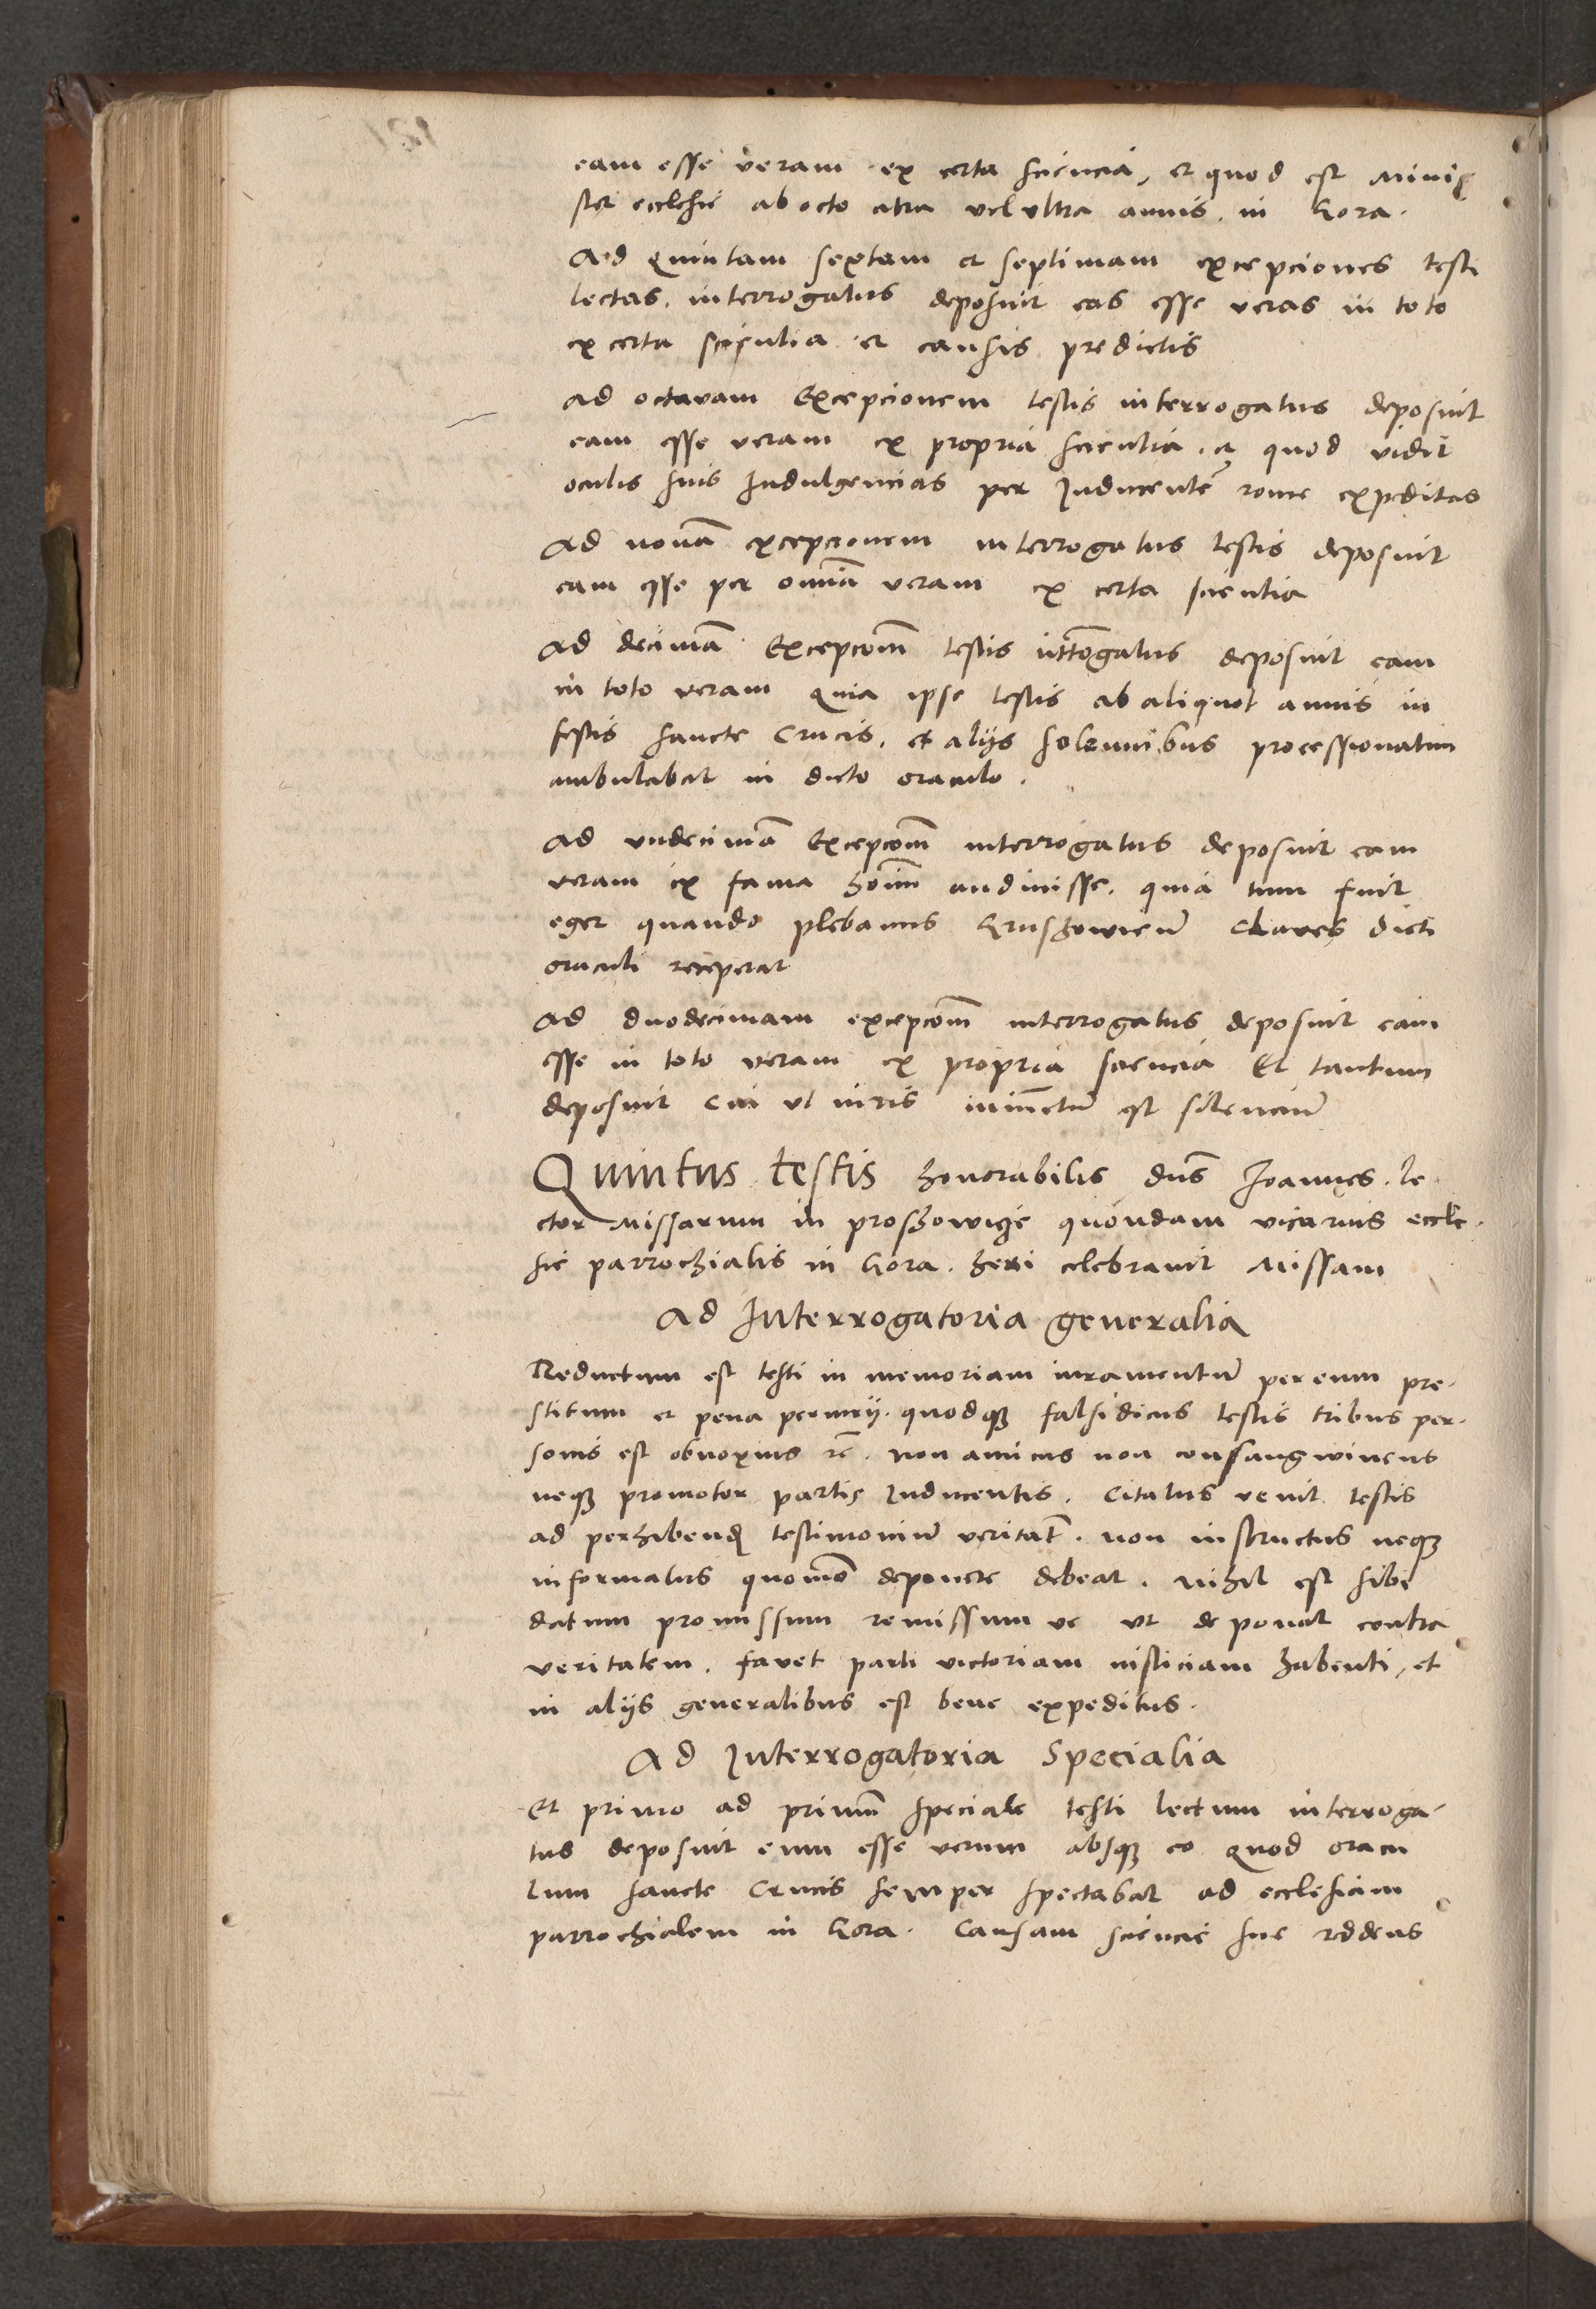 eam esse veram ex certa sciencia, et quod est Minis
ster ecclesie ab octo citra vel vltra annis. in Gora.
Ad Quintam sextam et septimam excepciones testi
lectas. interrogatus deposuit eas esse veras in toto
ex certa scientia et causis predictis
Ad octavam Excepcionem testis interrogatus deposuit
eam esse veram ex propria scientia. et quod vidit
oculis suis Indulgencias per Inducentē rome expeditas
Ad nonā excepcionem interrogatus testis deposuit
eam esse per omniā veram ex certa scientia
Ad decimā Excepcōm testis inttogatus deposuit eam
in toto veram Quia ipse testis ab aliquot annis in
festis sancte Crucis. et alijs solemnibus processionatim
ambulabat in dicto oraculo.
Ad vndecimā Excepcōm interrogatus deposuit eam
veram ex fama hoīm audiuisse. quia tum fuit
eger quando plebanus Gruszowieñ Claves dicti
oraculi receperat
Ad duodecimam excepcōm interrogatus deposuit eam
esse in toto veram ex propria sciencia Et tantum
deposuit Cui vt iuris iniūctū est silenciū
Quintus testis honorabilis dns Ioannes. le
ctor Missarum in proszowicze quondam vicarius eccle.
sie parrochialis in Gora. heri celebravit Missam
Ad Interrogatoria generalia
Reductum est testi in memoriam iuramentū per eum pre.
stitum et pena periurij. quodqz falsidicus testis tribus per.
sonis est obnoxius rc. non amicus non consangwineus
neqz promotor partis Inducentis. Citatus venit testis
ad perhibend testimoniū veritat. non instructus neqz
informatus quomō deponere debeat. nihil est sibi
datum promissum remissum ve vt deponat contra
veritatem. favet parti victoriam iusticiam habenti, et
in alijs generalibus est bene expeditus.
Ad Interrogatoria Specialia
Et primo ad primū speciale testi lectum interroga-
tus deposuit eum esse verum absqz eo Quod oracu
lum sancte Crucis semper spectabat ad ecclesiam
parrochialem in Gora. Causam sciencie sue reddens